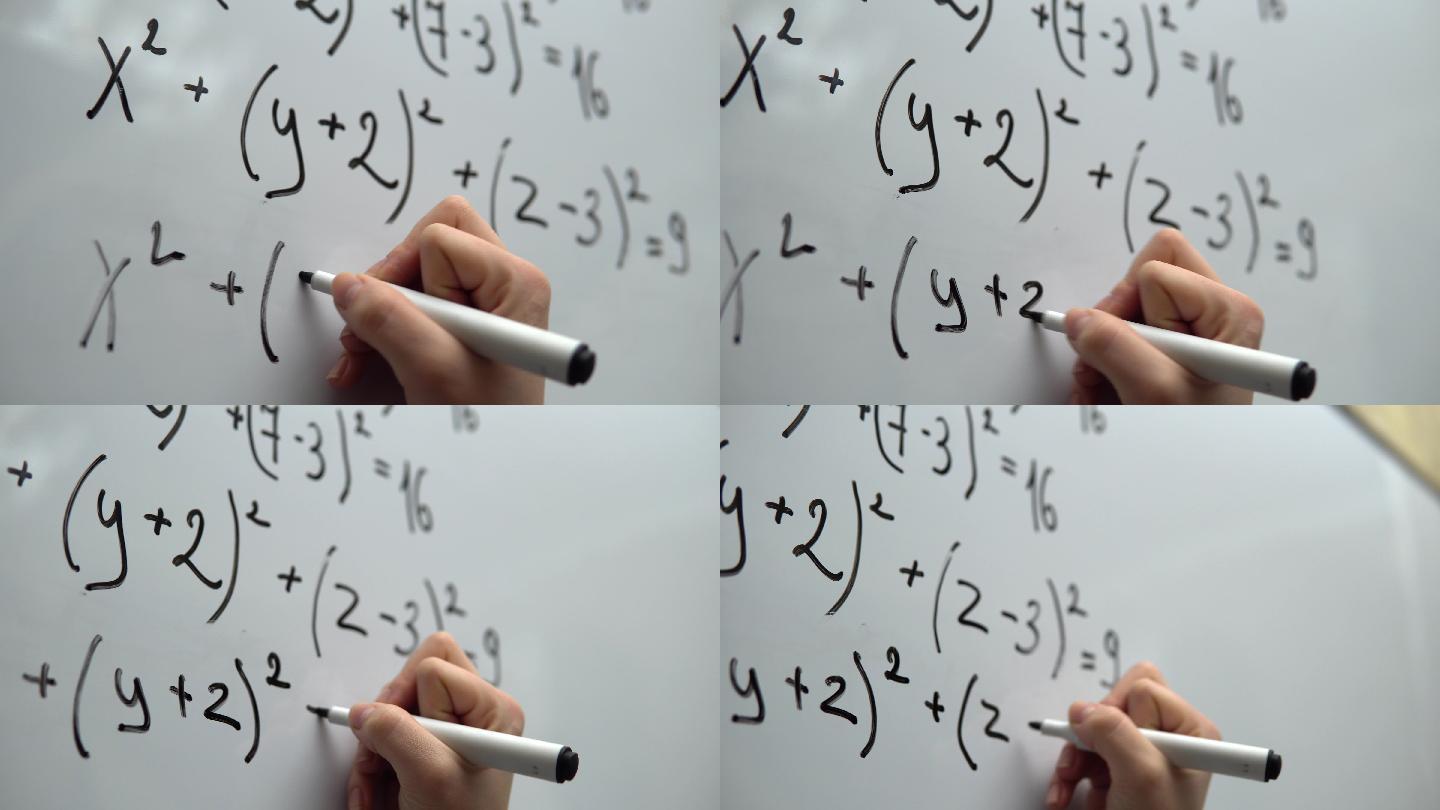 ) +(7-3)² = 16
X² + (y+2)² + (z-3)² = 9
X² + (
) +(7-3)² = 16
X² + (y+2)² + (z-3)² = 9
X² + (y+2
) +(7-3)² = 16
+ (y+2)² + (z-3)² = 9
+ (y+2)²
) +(7-3)² = 16
y+2)² + (z-3)² = 9
y+2)² + (z